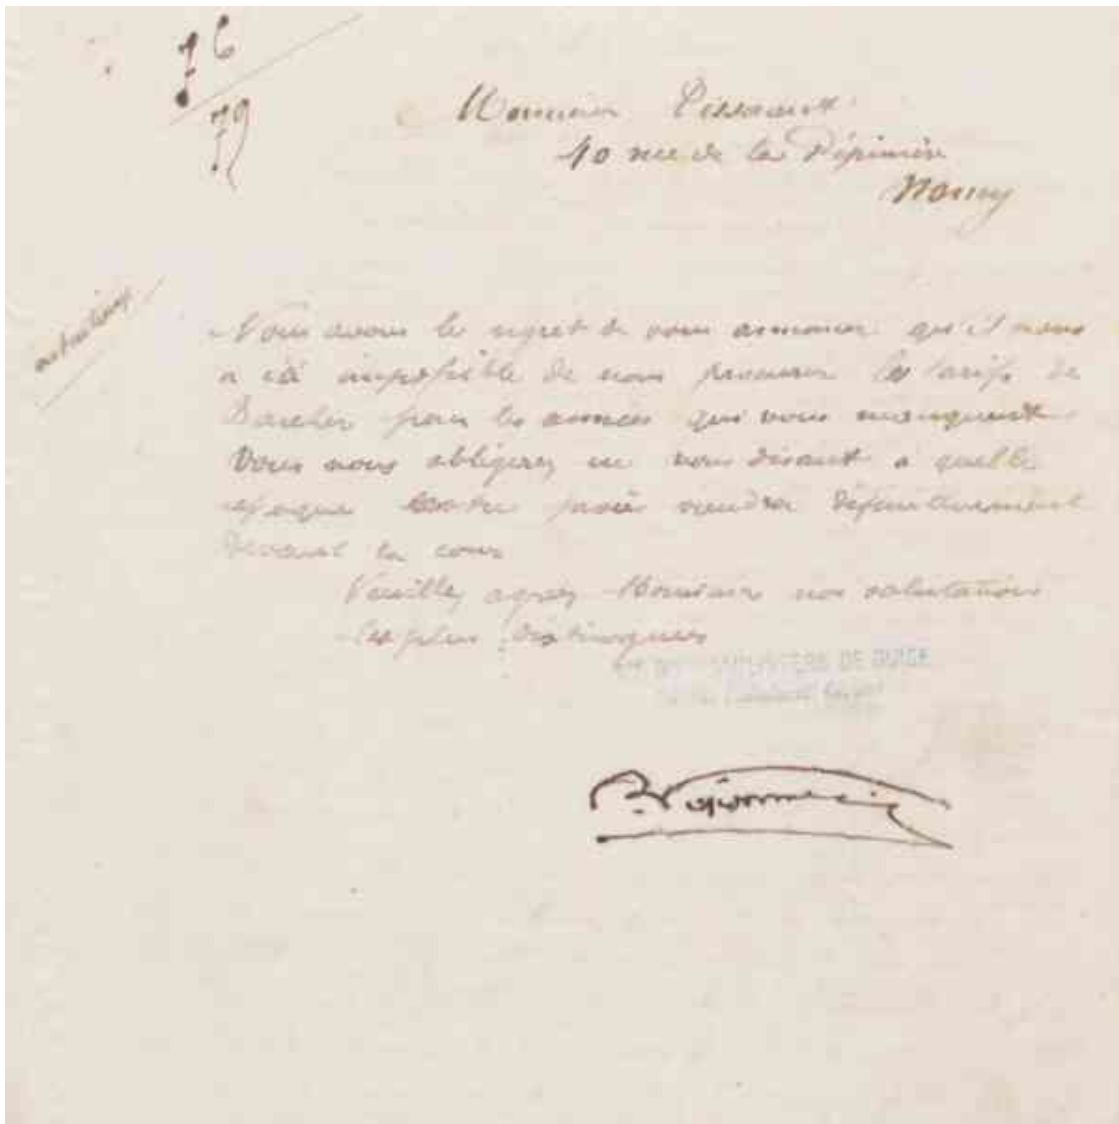 76
79
Monsieur Pissault
10 rue de la Pépinière
Nancy
Nous avons le regret de vous annoncer qu'il nous
a été impossible de nous procurer les tarifs de
pour les années qui vous manquent
Vous nous obligerez en nous disant à quelle
époque procès viendra définitivement
devant la cour
Veuillez agréer Monsieur nos salutations
les plus distinguées
DE GUISE